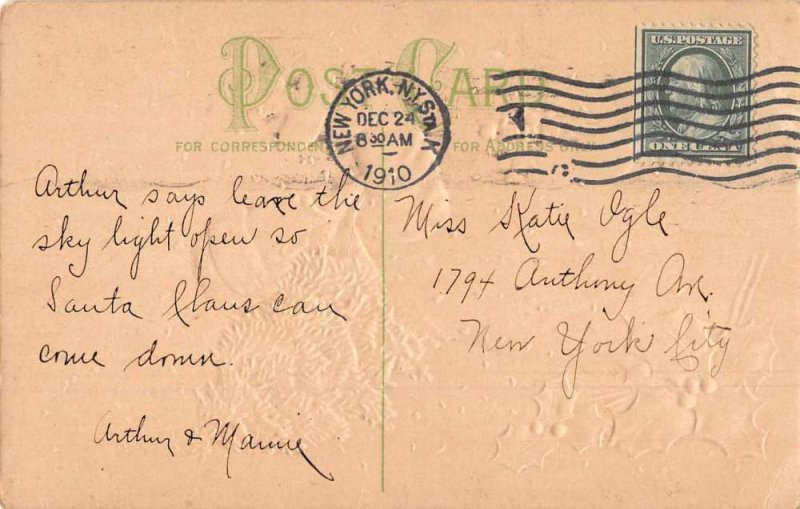 POST CARD
FOR CORRESPONDENCE
FOR ADDRESS ONLY
NEW YORK, N.Y. STA. K
DEC 24
8 30 AM
1910
U.S. POSTAGE
ONE CENT
Arthur says leave the
sky light open so
Santa Claus can
come down.
Arthur & Mamie
Miss Katie Ogle
1794 Anthony Ave.
New York City